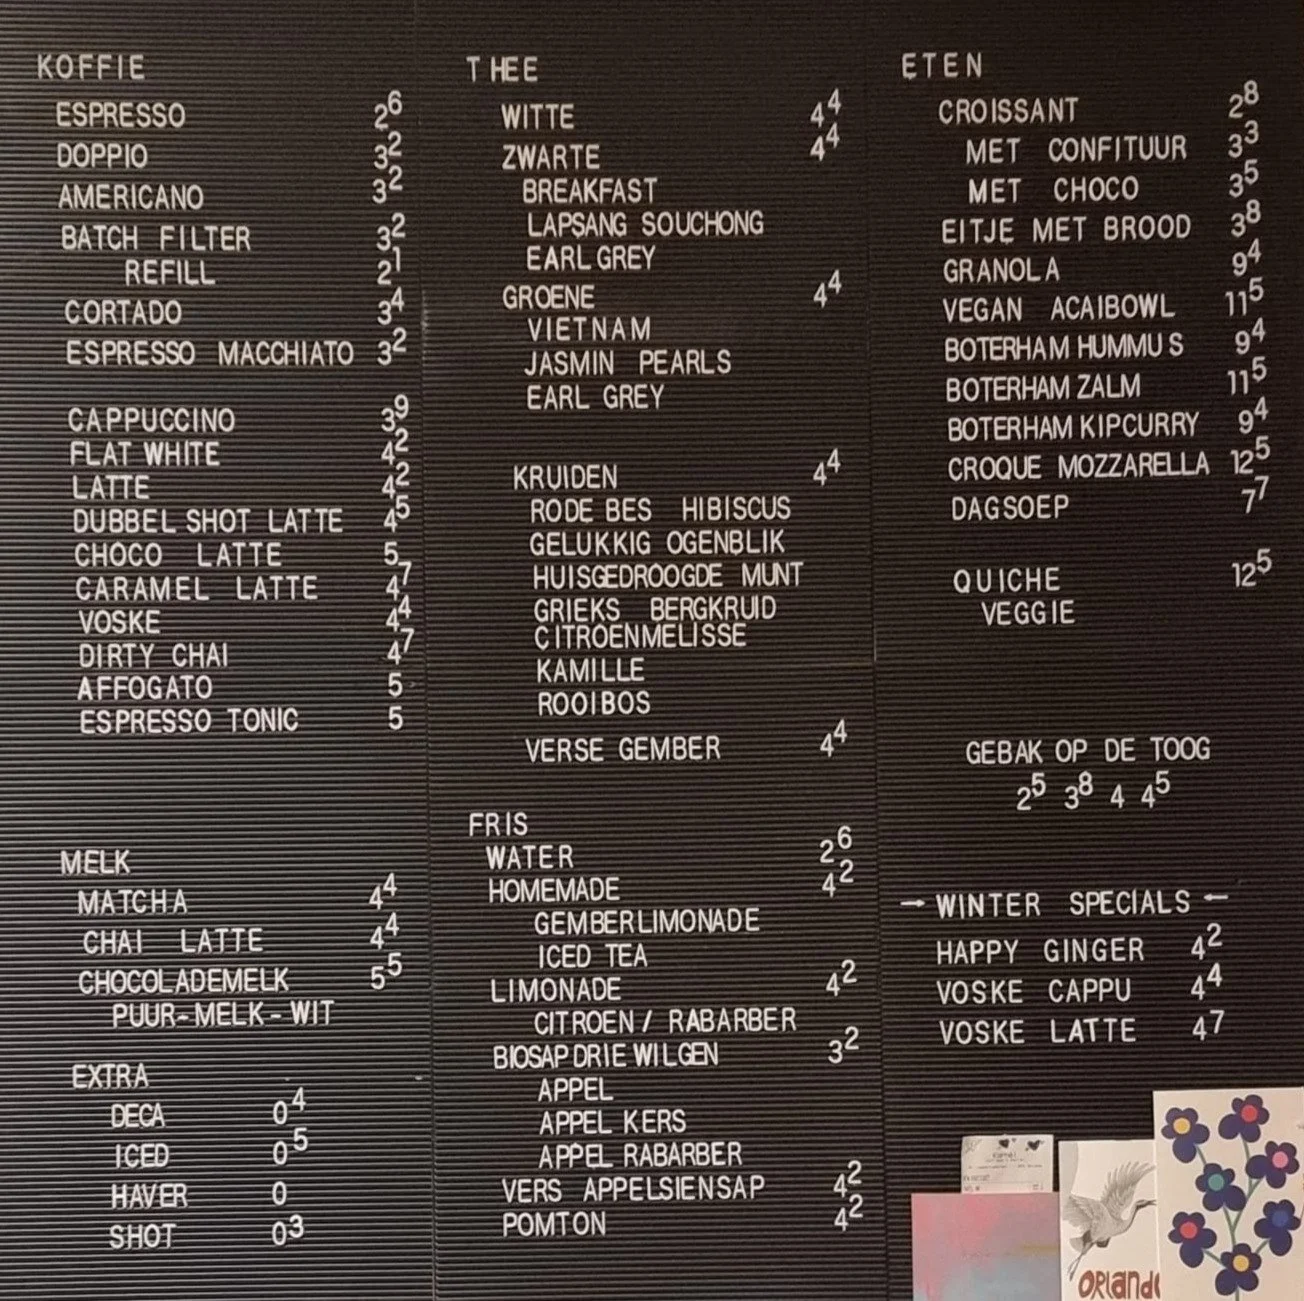 KOFFIE
ESPRESSO 2⁶
DOPPIO 3²
AMERICANO 3²
BATCH FILTER 3²
REFILL 2¹
CORTADO 3⁴
ESPRESSO MACCHIATO 3²
CAPPUCCINO 3⁹
FLAT WHITE 4²
LATTE 4²
DUBBEL SHOT LATTE 4⁵
CHOCO LATTE 5
CARAMEL LATTE 4⁷
VOSKE 4⁴
DIRTY CHAI 4⁷
AFFOGATO 5
ESPRESSO TONIC 5
MELK
MATCHA 4⁴
CHAI LATTE 4⁴
CHOCOLADEMELK 5⁵
PUUR-MELK-WIT
EXTRA
DECA 0⁴
ICED 0⁵
HAVER 0
SHOT 0³
THEE
WITTE 4⁴
ZWARTE 4⁴
BREAKFAST
LAPSANG SOUCHONG
EARL GREY
GROENE 4⁴
VIETNAM
JASMIN PEARLS
EARL GREY
KRUIDEN 4⁴
RODE BES HIBISCUS
GELUKKIG OGENBLIK
HUISGEDROOGDE MUNT
GRIEKS BERGKRUID
CITROENMELISSE
KAMILLE
ROOIBOS
VERSE GEMBER 4⁴
FRIS
WATER 2⁶
HOMEMADE 4²
GEMBERLIMONADE
ICED TEA
LIMONADE 4²
CITROEN / RABARBER
BIOSAP DRIE WILGEN 3²
APPEL
APPEL KERS
APPEL RABARBER
VERS APPELSIENSAP 4²
POMTON 4²
ETEN
CROISSANT 2⁸
MET CONFITUUR 3³
MET CHOCO 3⁵
EITJE MET BROOD 3⁸
GRANOLA 9⁴
VEGAN ACAIBOWL 11⁵
BOTERHAM HUMMUS 9⁴
BOTERHAM ZALM 11⁵
BOTERHAM KIPCURRY 9⁴
CROQUE MOZZARELLA 12⁵
DAGSOEP 7⁷
QUICHE 12⁵
VEGGIE
GEBAK OP DE TOOG
2⁵ 3⁸ 4 4⁵
→ WINTER SPECIALS ←
HAPPY GINGER 4²
VOSKE CAPPU 4⁴
VOSKE LATTE 4⁷